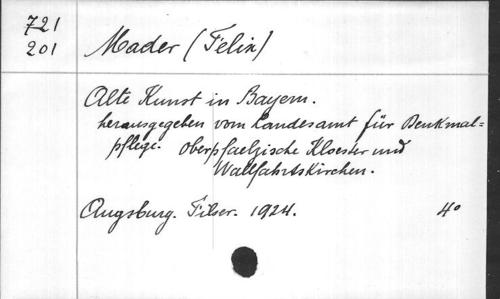 721
201
Mader (Felix)
Alte Kunst in Bayern.
herausgegeben vom Landesamt für Denkmal=
pflege. Oberpfaelzische Kloester und
Wallfahrtskirchen.
Augsburg. Filser. 1924. 4°